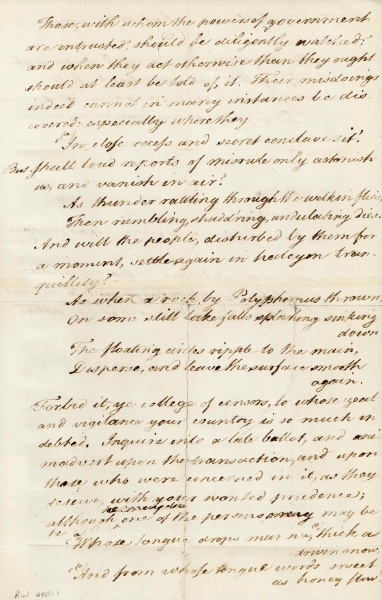 Those, with whom the powers of government
are entrusted, should be diligently watched;
and when they act otherwise than they ought
should at least be told of it. Their misdoings
indeed cannot in many instances be dis
covered; especially where they
"In close recess and secret conclave sit."
But shall loud reports of misrule only astonish
us, and vanish in air?
As thunder rattling through the welkin flies,
Then rumbling, shuddring, undulating dies.
And will the people, disturbed by them for
a moment, settle again in halcyon tran-
quillity?
As when a rock, by Polyphemus thrown,
On some still lake falls splashing sinking
down
The floating circles ripple to the main,
Disperse, and leave the surface smooth
again.
Forbid it, ye college of censors, to whose zeal
and vigilance your country is so much in
debted. Inquire into a late ballot, and ani
madvert upon the transaction, and upon
those who were concerned in it, as they
deserve, with your wonted prudence;
although one of the persons may be
"Whose tongue drops thick as
driven snow
"And from whose tongue words sweet
as honey flow."
R.W.